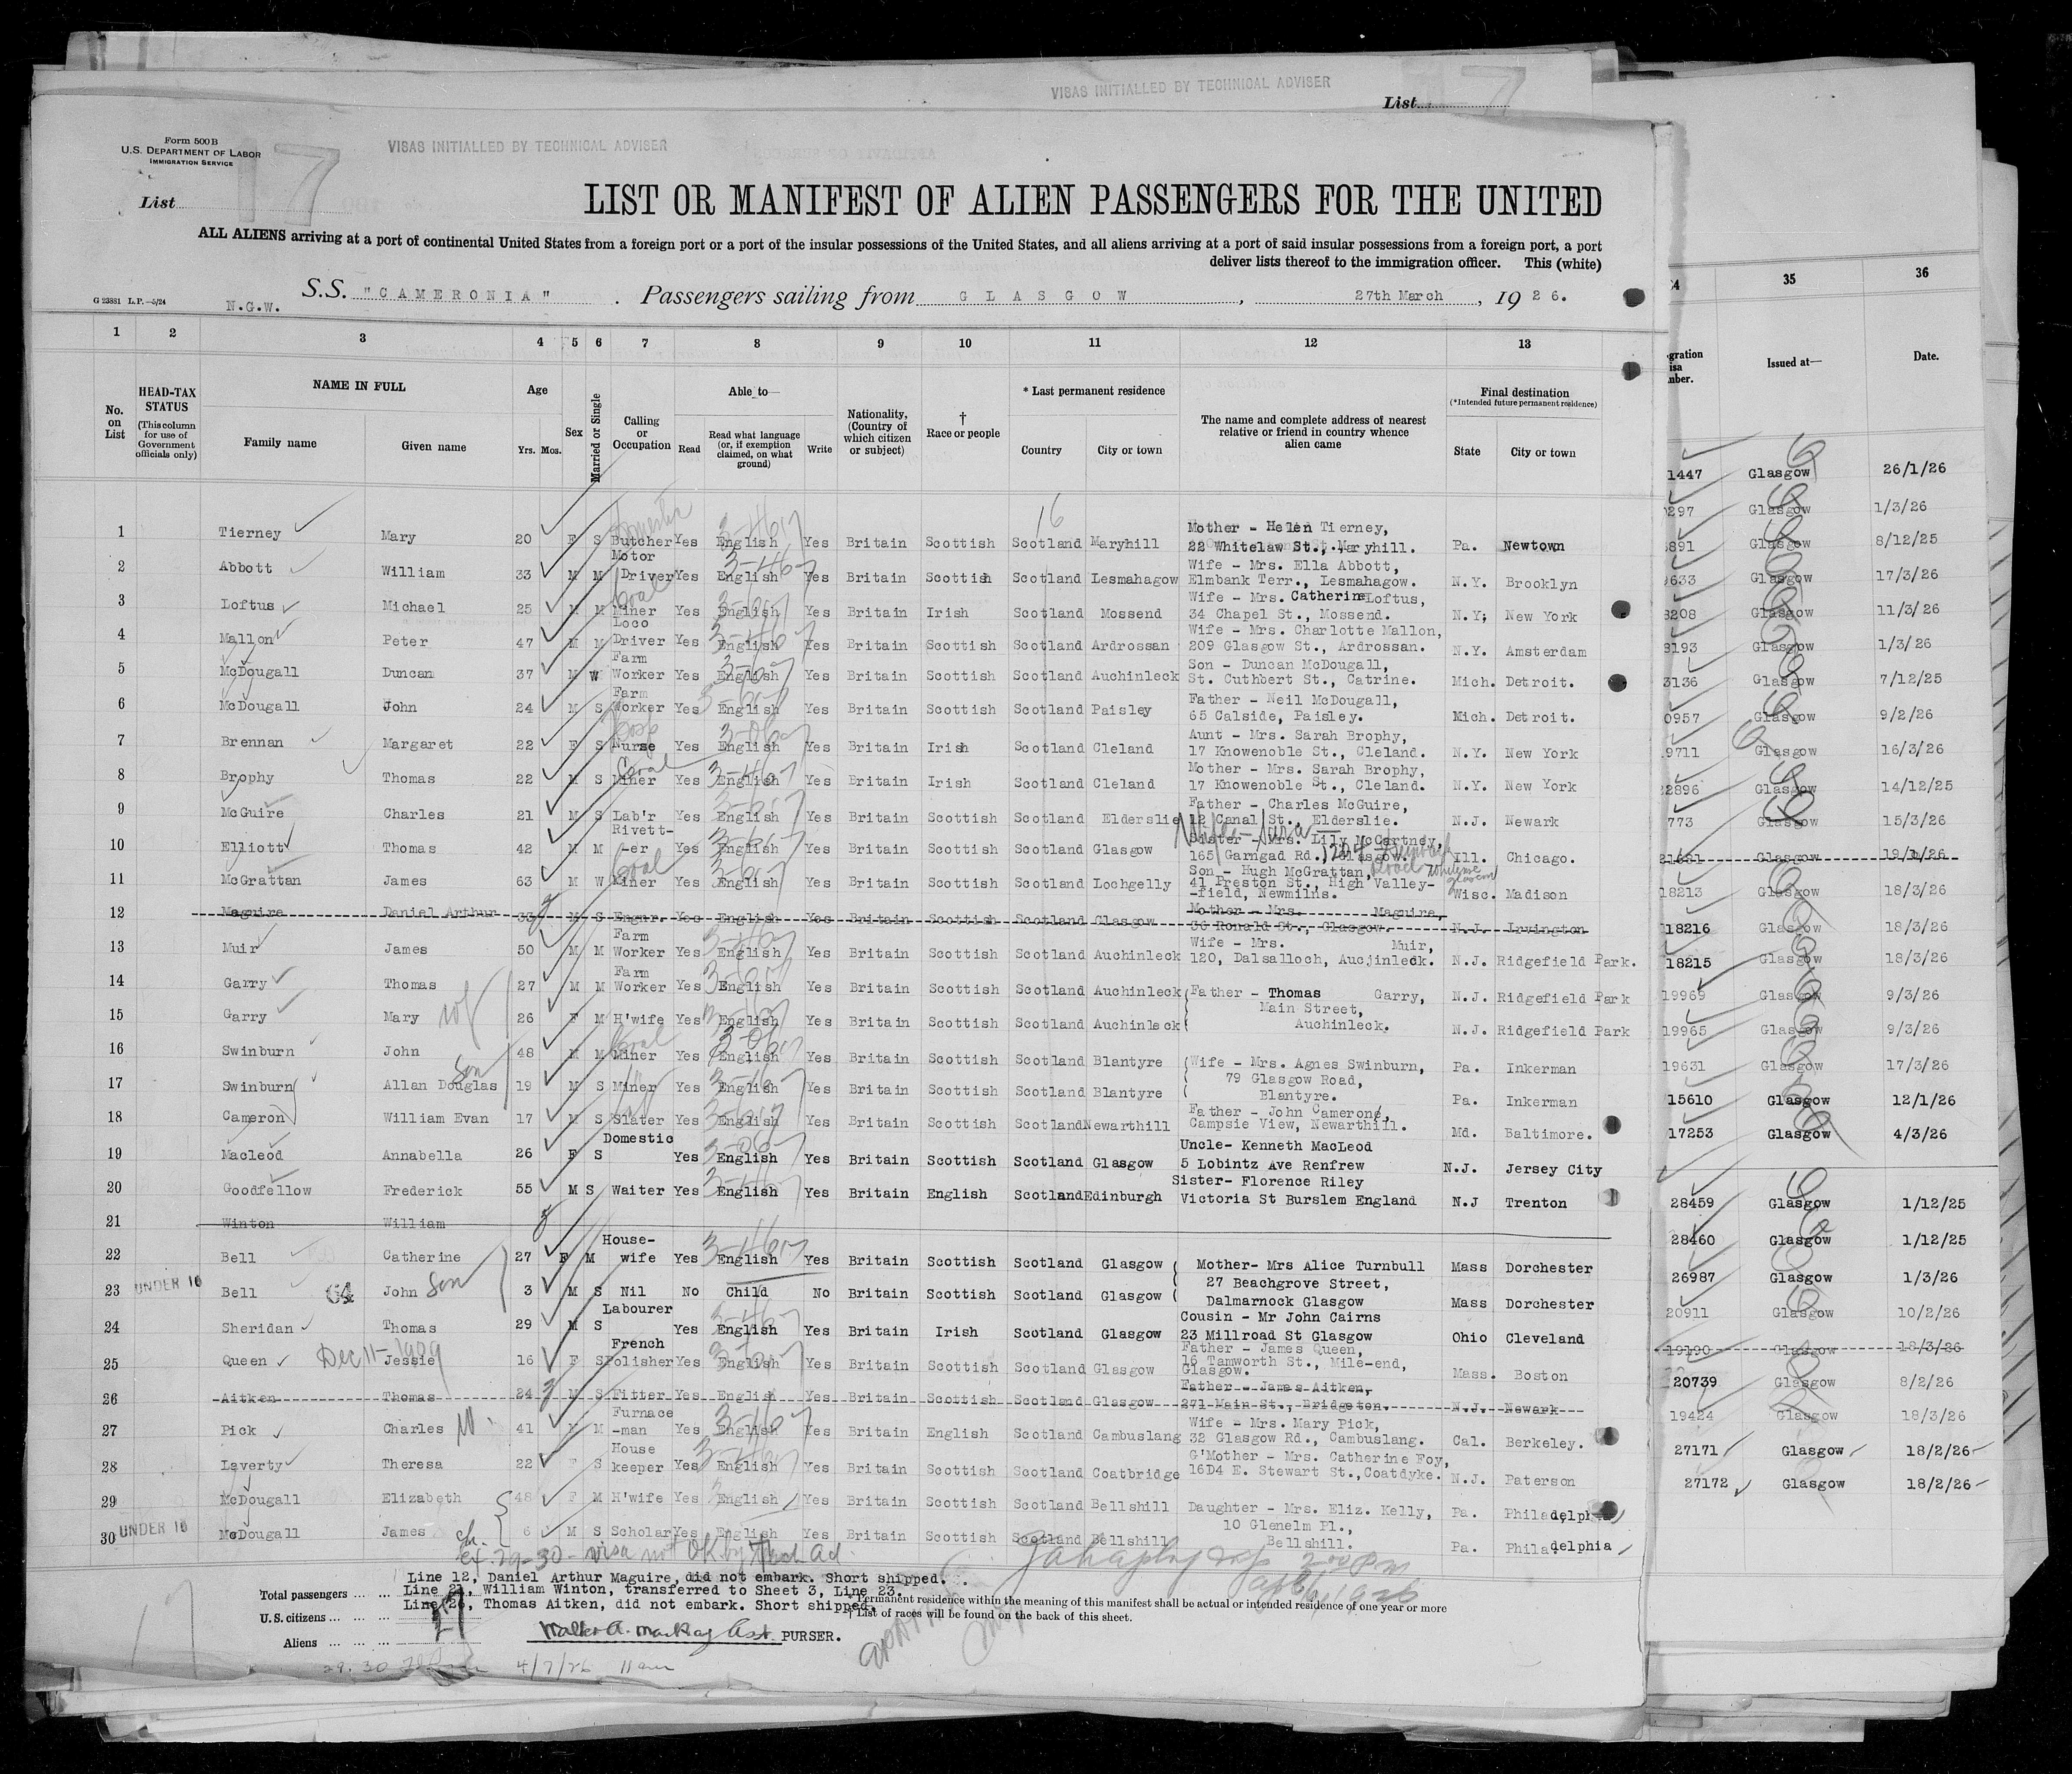 VISAS INITIALLED BY TECHNICAL ADVISER
List
Form 500 B
U.S. DEPARTMENT OF LABOR
IMMIGRATION SERVICE
VISAS INITIALLED BY TECHNICAL ADVISER
17
List
LIST OR MANIFEST OF ALIEN PASSENGERS FOR THE UNITED
ALL ALIENS arriving at a port of continental United States from a foreign port or a port of the insular possessions of the United States, and all aliens arriving at a port of said insular possessions from a foreign port, a port
deliver lists thereof to the immigration officer. This (white)
G 23881 L.P.—5/24
N.G.W.
S.S. "CAMERONIA". Passengers sailing from GLASGOW, 27th March, 1926.
1 2 3 4 5 6 7 8 9 10 11 12 13
No. on List
HEAD-TAX STATUS
(This column for use of Government officials only)
NAME IN FULL
Family name Given name
Age
Yrs. Mos.
Sex
Married or Single
Calling or Occupation
Able to—
Read
Read what language (or, if exemption claimed, on what ground)
Write
Nationality, (Country of which citizen or subject)
† Race or people
* Last permanent residence
Country City or town
The name and complete address of nearest relative or friend in country whence alien came
Final destination
(*Intended future permanent residence)
State City or town
16
1 Tierney Mary 20 F S Butcher Yes English Yes Britain Scottish Scotland Maryhill Mother - Helen Tierney, 22 Whitelaw St., Maryhill. Pa. Newtown
2 Abbott William 33 M M Motor Driver Yes English Yes Britain Scottish Scotland Lesmahagow Wife - Mrs. Ella Abbott, Elmbank Terr., Lesmahagow. N.Y. Brooklyn
3 Loftus Michael 25 M M Coal Miner Yes English Yes Britain Irish Scotland Mossend Wife - Mrs. Catherine Loftus, 34 Chapel St., Mossend. N.Y; New York
4 Mallon Peter 47 M M Loco Driver Yes English Yes Britain Scottish Scotland Ardrossan Wife - Mrs. Charlotte Mallon, 209 Glasgow St., Ardrossan. N.Y. Amsterdam
5 McDougall Duncan 37 M W Farm Worker Yes English Yes Britain Scottish Scotland Auchinleck Son - Duncan McDougall, St. Cuthbert St., Catrine. Mich. Detroit.
6 McDougall John 24 M S Farm Worker Yes English Yes Britain Scottish Scotland Paisley Father - Neil McDougall, 65 Calside, Paisley. Mich. Detroit.
7 Brennan Margaret 22 F S Hosp Nurse Yes English Yes Britain Irish Scotland Cleland Aunt - Mrs. Sarah Brophy, 17 Knowenoble St., Cleland. N.Y. New York
8 Brophy Thomas 22 M S Coal Miner Yes English Yes Britain Irish Scotland Cleland Mother - Mrs. Sarah Brophy, 17 Knowenoble St., Cleland. N.Y. New York
9 McGuire Charles 21 M S Lab'r Yes English Yes Britain Scottish Scotland Elderslie Father - Charles McGuire, 12 Canal St., Elderslie. N.J. Newark
10 Elliott Thomas 42 M M Rivett--er Yes English Yes Britain Scottish Scotland Glasgow Sister - Mrs. Lily McCartney, 165 Garngad Rd., Glasgow. Ill. Chicago.
11 McGrattan James 63 M W Coal Miner Yes English Yes Britain Scottish Scotland Lochgelly Son - Hugh McGrattan, 41 Preston St., High Valley--field, Newmilns. Wisc. Madison
12 Maguire Daniel Arthur 33 M S Engnr. Yes English Yes Britain Scottish Scotland Glasgow Mother - Mrs. Maguire, 36 Ronald St., Glasgow. N.J. Irvington
13 Muir James 50 M M Farm Worker Yes English Yes Britain Scottish Scotland Auchinleck Wife - Mrs. Muir, 120, Dalsalloch, Aucjinleck. N.J. Ridgefield Park.
14 Garry Thomas 27 M M Farm Worker Yes English Yes Britain Scottish Scotland Auchinleck Father - Thomas Garry, N.J. Ridgefield Park
15 Garry Mary wf 26 F M H'wife Yes English Yes Britain Scottish Scotland Auchinleck Main Street, Auchinleck. N.J. Ridgefield Park
16 Swinburn John 48 M M Coal Miner Yes English Yes Britain Scottish Scotland Blantyre Wife - Mrs. Agnes Swinburn, Pa. Inkerman
17 Swinburn Allan Douglas Son 19 M S Miner Yes English Yes Britain Scottish Scotland Blantyre 79 Glasgow Road, Blantyre. Pa. Inkerman
18 Cameron William Evan 17 M S Slater Yes English Yes Britain Scottish Scotland Newarthill Father - John Cameron, Campsie View, Newarthill. Md. Baltimore.
19 Macleod Annabella 26 F S Domestic Yes English Yes Britain Scottish Scotland Glasgow Uncle- Kenneth MacLeod 5 Lobintz Ave Renfrew N.J. Jersey City
20 Goodfellow Frederick 55 M S Waiter Yes English Yes Britain English Scotland Edinburgh Sister- Florence Riley Victoria St Burslem England N.J Trenton
21 Winton William
22 Bell Catherine 27 F M House-wife Yes English Yes Britain Scottish Scotland Glasgow Mother- Mrs Alice Turnbull Mass Dorchester
23 UNDER 16 Bell John Son 3 M S Nil No Child No Britain Scottish Scotland Glasgow 27 Beachgrove Street, Dalmarnock Glasgow Mass Dorchester
24 Sheridan Thomas 29 M S Labourer Yes English Yes Britain Irish Scotland Glasgow Cousin - Mr John Cairns 23 Millroad St Glasgow Ohio Cleveland
25 Queen Dec 11-1909 Jessie 16 F S French Polisher Yes English Yes Britain Scottish Scotland Glasgow Father - James Queen, 16 Tamworth St., Mile-end, Glasgow. Mass. Boston
26 Aitken Thomas 24 M S Fitter Yes English Yes Britain Scottish Scotland Glasgow Father - James Aitken, 271 Main St., Bridgeton. N.J. Newark
27 Pick Charles 41 M M Furnace -man Yes English Yes Britain English Scotland Cambuslang Wife - Mrs. Mary Pick, 32 Glasgow Rd., Cambuslang. Cal. Berkeley.
28 Laverty Theresa 22 F S House keeper Yes English Yes Britain Scottish Scotland Coatbridge G'Mother - Mrs. Catherine Foy, 16D4 E. Stewart St., Coatdyke. N.J. Paterson
29 McDougall Elizabeth 48 F M H'wife Yes English Yes Britain Scottish Scotland Bellshill Daughter - Mrs. Eliz. Kelly, Pa. Philadelphia
30 UNDER 16 McDougall James ch. 6 M S Scholar Yes English Yes Britain Scottish Scotland Bellshill 10 Glenelm Pl., Bellshill. Pa. Philadelphia
29-30 - visa not OK by Tech Ad.
Line 12, Daniel Arthur Maguire, did not embark. Short shipped.
Line 21, William Winton, transferred to Sheet 3, Line 23.
Line 26, Thomas Aitken, did not embark. Short shipped.
Total passengers
U.S. citizens
Aliens
27
PURSER.
* Permanent residence within the meaning of this manifest shall be actual or intended residence of one year or more
† List of races will be found on the back of this sheet.
29.30 4/7/26 11 am
34 35 36
gration
isa
mber.
Issued at—
Date.
1447 Glasgow 26/1/26
297 Glasgow 1/3/26
891 Glasgow 8/12/25
9633 Glasgow 17/3/26
8208 Glasgow 11/3/26
8193 Glasgow 1/3/26
3136 Glasgow 7/12/25
0957 Glasgow 9/2/26
9711 Glasgow 16/3/26
22896 Glasgow 14/12/25
773 Glasgow 15/3/26
Glasgow 19/1/26
18213 Glasgow 18/3/26
18216 Glasgow 18/3/26
18215 Glasgow 18/3/26
19969 Glasgow 9/3/26
19965 Glasgow 9/3/26
19631 Glasgow 17/3/26
15610 Glasgow 12/1/26
17253 Glasgow 4/3/26
28459 Glasgow 1/12/25
28460 Glasgow 1/12/25
26987 Glasgow 1/3/26
20911 Glasgow 10/2/26
19190 Glasgow 18/3/26
20739 Glasgow 8/2/26
19424 Glasgow 18/3/26
27171 Glasgow 18/2/26
27172 Glasgow 18/2/26